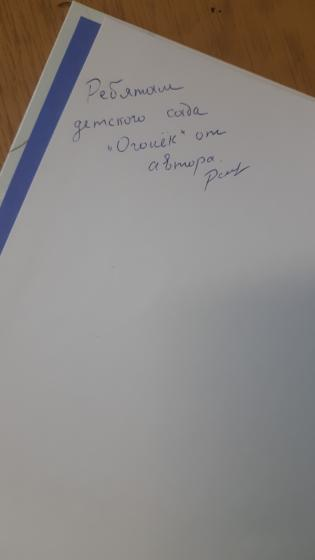 Ребятам
детского сада
"Огонёк" от
автора.